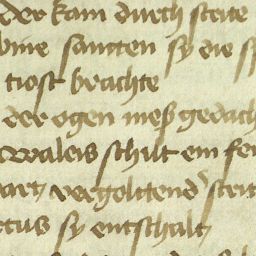 der kam durch strite
bine santen sy die s
tiost brachte
der ogen meß gedach
waleis schilt ein fe
vart vergolttend strit
sy entschalt